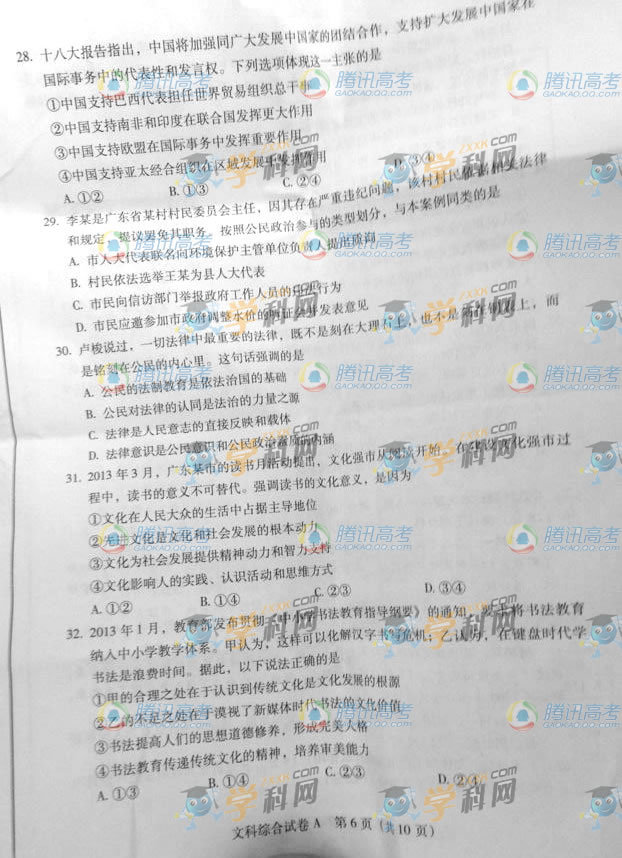 28. 十八大报告指出，中国将加强同广大发展中国家的团结合作，支持扩大发展中国家在
国际事务中的代表性和发言权。下列选项体现这一主张的是
①中国支持巴西代表担任世界贸易组织总干事
②中国支持南非和印度在联合国发挥更大作用
③中国支持欧盟在国际事务中发挥重要作用
④中国支持亚太经合组织在区域发展中发挥作用
A. ①② B. ①③ C. ②④ D. ③④
29. 李某是广东省某村村民委员会主任，因其存在严重违纪问题，该村村民依据相关法律
和规定，提议罢免其职务。按照公民政治参与的类型划分，与本案例同类的是
A. 市人大代表联名向环境保护主管单位负责人提出质询
B. 村民依法选举王某为县人大代表
C. 市民向信访部门举报政府工作人员的违法行为
D. 市民应邀参加市政府调整水价的听证会并发表意见
30. 卢梭说过，一切法律中最重要的法律，既不是刻在大理石上，也不是刻在铜表上，而
是铭刻在公民的内心里。这句话强调的是
A. 公民的法制教育是依法治国的基础
B. 公民对法律的认同是法治的力量之源
C. 法律是人民意志的直接反映和载体
D. 法律意识是公民意识和公民政治素质的内涵
31. 2013 年 3 月，广东某市的读书月活动提出，文化强市从阅读开始。在建设文化强市过
程中，读书的意义不可替代。强调读书的文化意义，是因为
①文化在人民大众的生活中占据主导地位
②先进文化是文化和社会发展的根本动力
③文化为社会发展提供精神动力和智力支持
④文化影响人的实践、认识活动和思维方式
A. ①② B. ①④ C. ②③ D. ③④
32. 2013 年 1 月，教育部发布贯彻《中小学书法教育指导纲要》的通知，要求将书法教育
纳入中小学教学体系。甲认为，这样可以化解汉字书写危机；乙认为，在键盘时代学
书法是浪费时间。据此，以下说法正确的是
①甲的合理之处在于认识到传统文化是文化发展的根源
②乙的不足之处在于漠视了新媒体时代书法的文化价值
③书法提高人们的思想道德修养，形成完美人格
④书法教育传递传统文化的精神，培养审美能力
A. ①③ B. ①④ C. ②③ D. ②④
文科综合试卷 A 第 6 页（共 10 页）
腾讯高考
GAOKAO.QQ.COM
学科网
ZXXK.COM